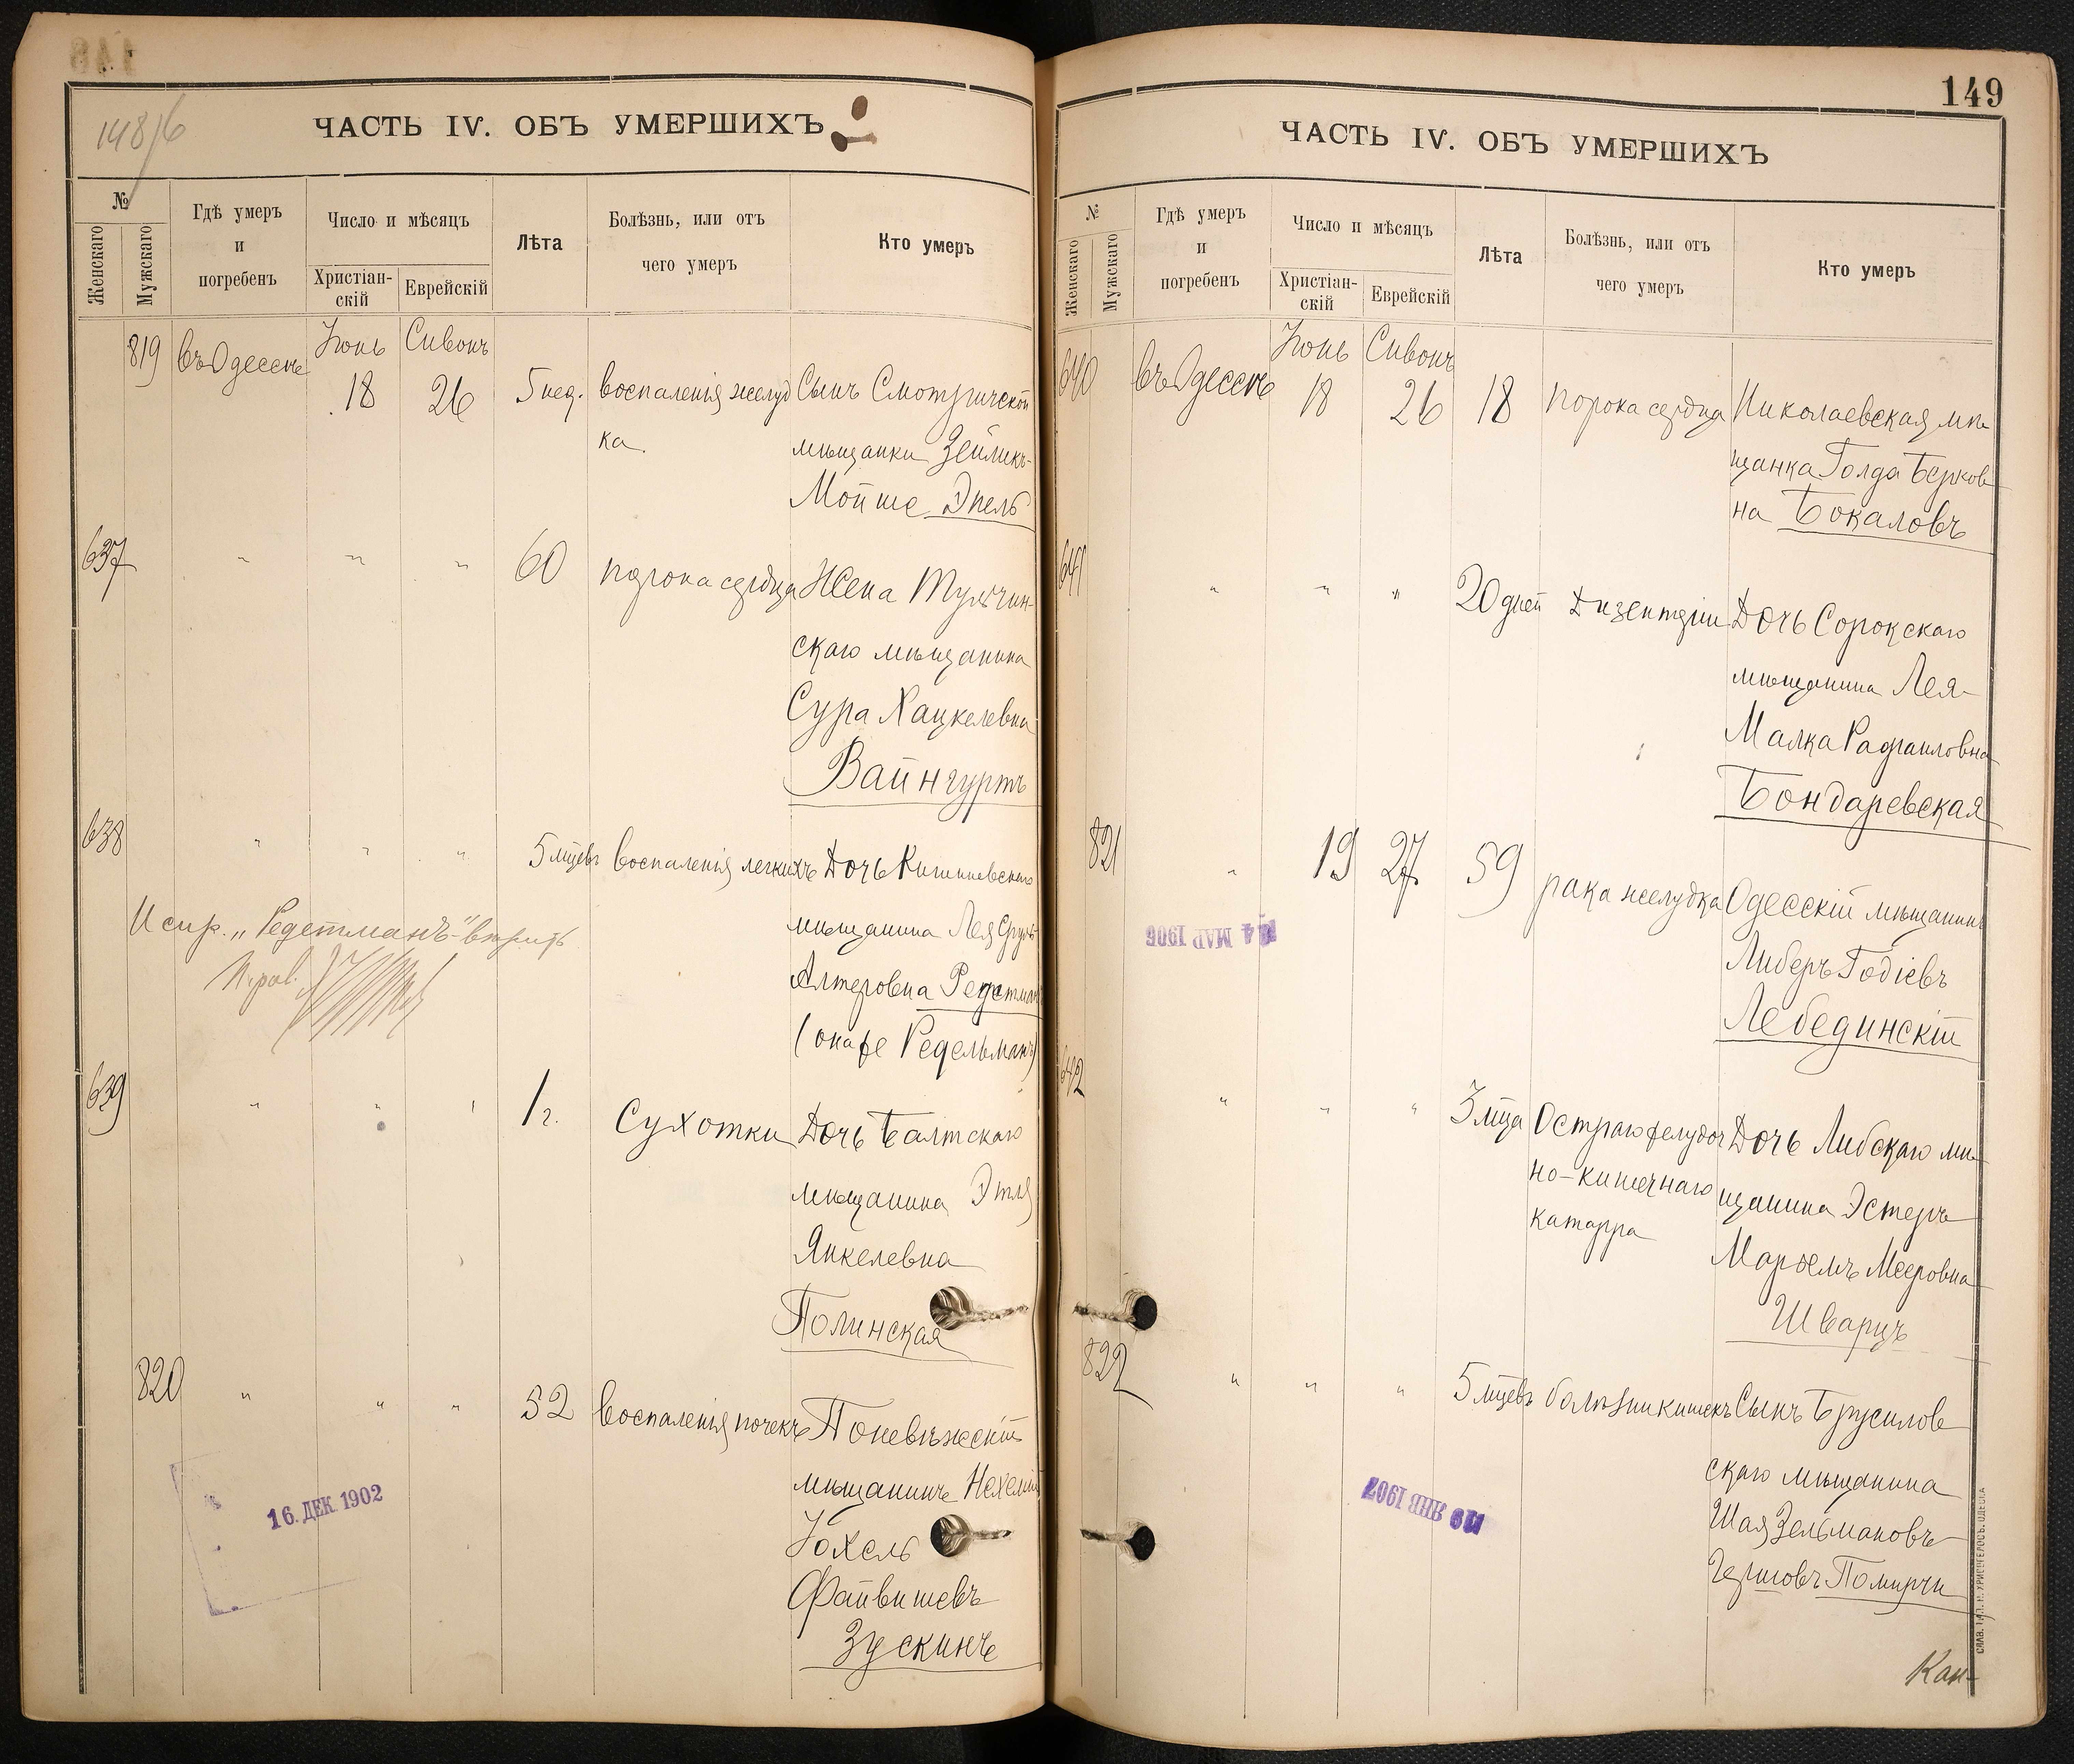 148/6
ЧАСТЬ IV. ОБЪ УМЕРШИХЪ
№
Женскаго
Мужскаго
Гдѣ умеръ
и
погребенъ
Число и мѣсяцъ
Христіан-
скій
Еврейскій
Лѣта
Болѣзнь, или отъ
чего умеръ
Кто умеръ
819 въ Одессѣ Іюнь 18 Сивонъ 26 5 нед. воспаленія желуд
ка
Сынъ Смотричской
мѣщанки Зейликъ-
Мойше Эпель
637 " " " 60 порока сердца Жена Тульчин-
скаго мѣщанина
Сура Хацкелевна
Вайнгуртъ
638 " " " 5 мцевъ воспаленія легкихъ Дочь Кишиневскаго
мѣщанина Лея Суръ
Алтеровна Редетманъ
(она же Редельманъ)
Испр. „Редетманъ" вѣрить
639 " " " 1 г. Сухотки Дочь Балтскаго
мѣщанина Этля
Янкелевна
Полинская
820 " " " 52 воспаленія почекъ Поневѣжскій
мѣщанинъ Нехемія
Іохель
Файвишевъ
Зускинъ
16. ДЕК. 1902
149
ЧАСТЬ IV. ОБЪ УМЕРШИХЪ
№
Женскаго
Мужскаго
Гдѣ умеръ
и
погребенъ
Число и мѣсяцъ
Христіан-
скій
Еврейскій
Лѣта
Болѣзнь, или отъ
чего умеръ
Кто умеръ
640 въ Одессѣ Іюнь 18 Сивонъ 26 18 порока сердца Николаевская мѣ
щанка Голда Берков
на Бокаловъ
641 " " " 20 дней Дизентеріи Дочь Сорокскаго
мѣщанина Лея-
Малка Рафаиловна
Бондаревская
821 " 19 27 59 рака желудка Одесскій мѣщанинъ
Либеръ Годіевъ
Лебединскій
МАР 1906
642 " " " 3 мца Остраго желудоч
но-кишечнаго
катарра
Дочь Либскаго мѣ
щанина Эстеръ
Мариемъ Мееровна
Шварцъ
822 " " " 5 мцевъ болѣзни кишекъ Сынъ Брусилов
скаго мѣщанина
Шая Зельмановъ
Гершовъ Помирчи
19 ЯНВ 1907
Кан-
СЛАВ. ТИП. Н. ХРИСОГЕЛОСЪ. ОДЕССА